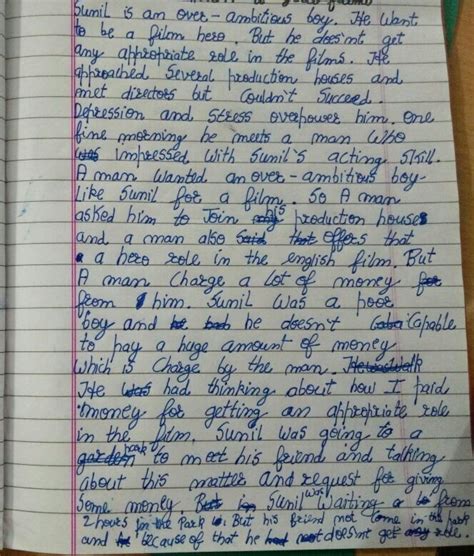 good friend
Sunil is an over-ambitious boy. He want
to be a film hero. But he does'nt get
any appropriate role in the films. He
approached Several production houses and
met directors but Couldn't Succeed.
Depression and stress overpower him. One
fine morning he meets a man who
was impressed with Sunil's acting Skill.
A man wanted an over-ambitious boy
Like Sunil for a film. So A man
asked him to Join his production houses
and a man also Said that offers that
a a hero role in the english film. But
A man Charge a Lot of money for
from him. Sunil Was a poor
boy and he had he doesn't Capable
to pay a huge amount of money
Which is Charge by the man.
He was had thinking about how I paid
money for getting an appropriate role
in the film. Sunil was going to a
garden park to meet his friend and talking
about this matter and request for giving
Some money. But in Sunil was Waiting from
2 hours in the Park. But his friend not come in the park
and he because of that he not doesn't get any role